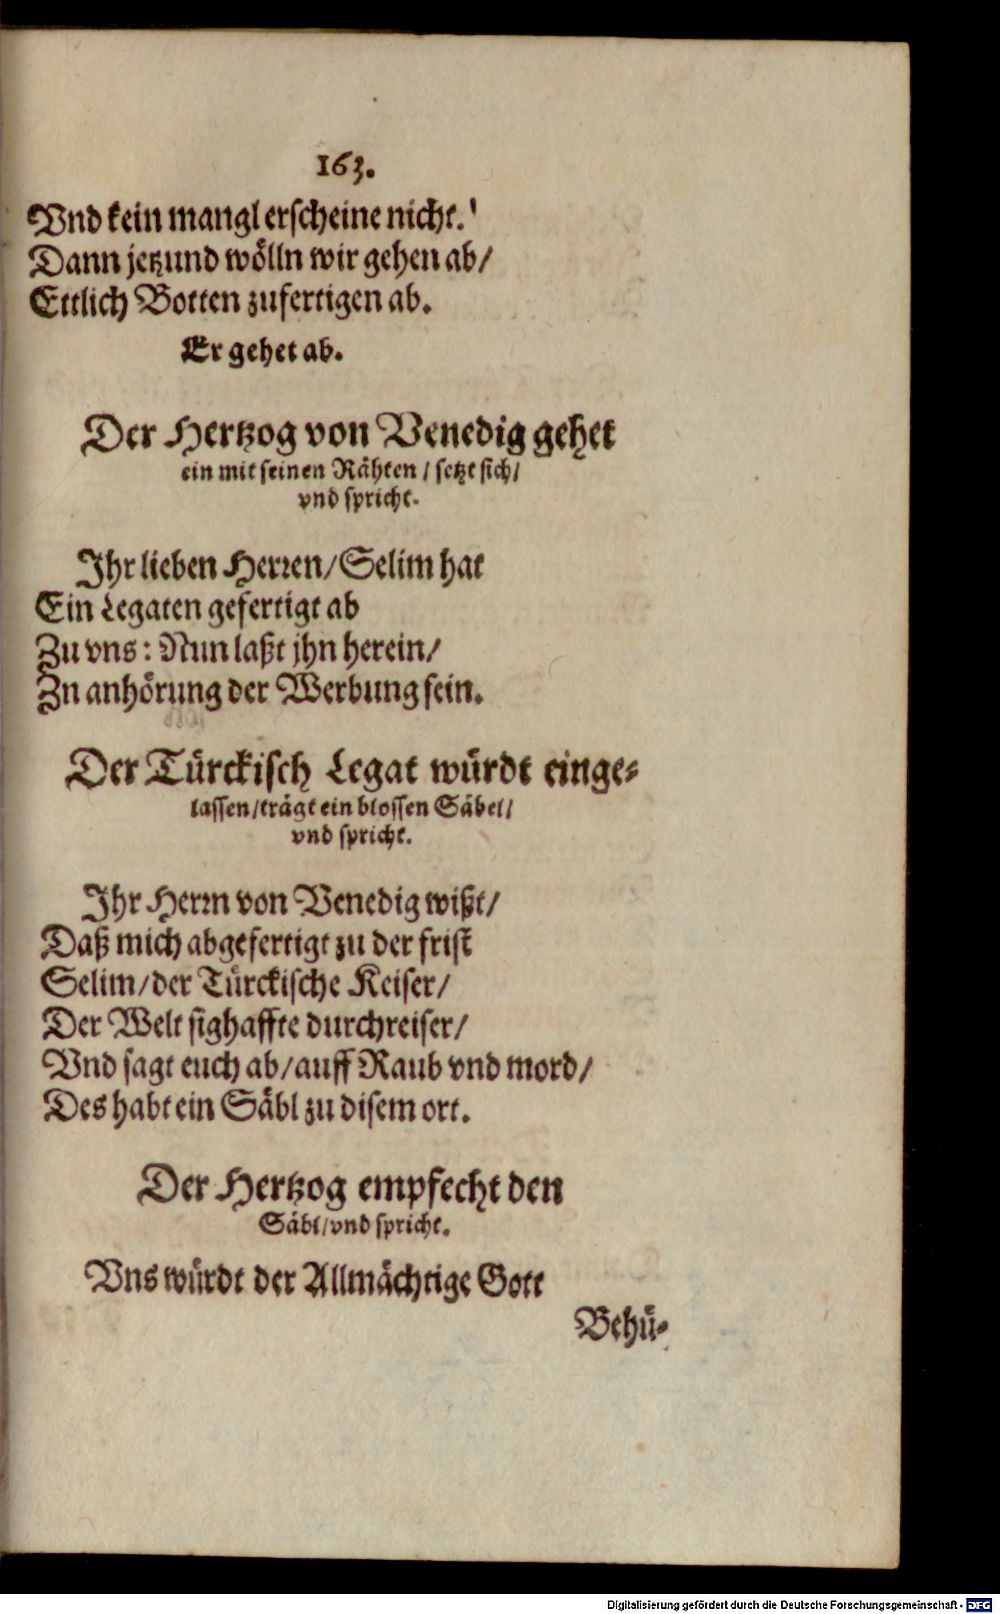 163.
Vnd kein mangl erscheine nicht.
Dann jetzund wölln wir gehen ab/
Ettlich Botten zufertigen ab.
Er gehet ab.
Der Hertzog von Venedig gehet
ein mit seinen Rähten / setzt sich/
vnd spricht.
Ihr lieben Herren/Selim hat
Ein Legaten gefertigt ab
Zu vns: Nun laßt jhn herein/
Zn anhörung der Werbung sein.
Der Türckisch Legat würdt einge-
lassen/trägt ein blossen Säbel/
vnd spricht.
Ihr Herrn von Venedig wißt/
Daß mich abgefertigt zu der frist
Selim/der Türckische Keiser/
Der Welt sighaffte durchreiser/
Vnd sagt euch ab/auff Raub vnd mord/
Des habt ein Säbl zu disem ort.
Der Hertzog empfecht den
Säbl/vnd spricht.
Vns würdt der Allmächtige Gott
Behü-
Digitalisierung gefördert durch die Deutsche Forschungsgemeinschaft - DFG